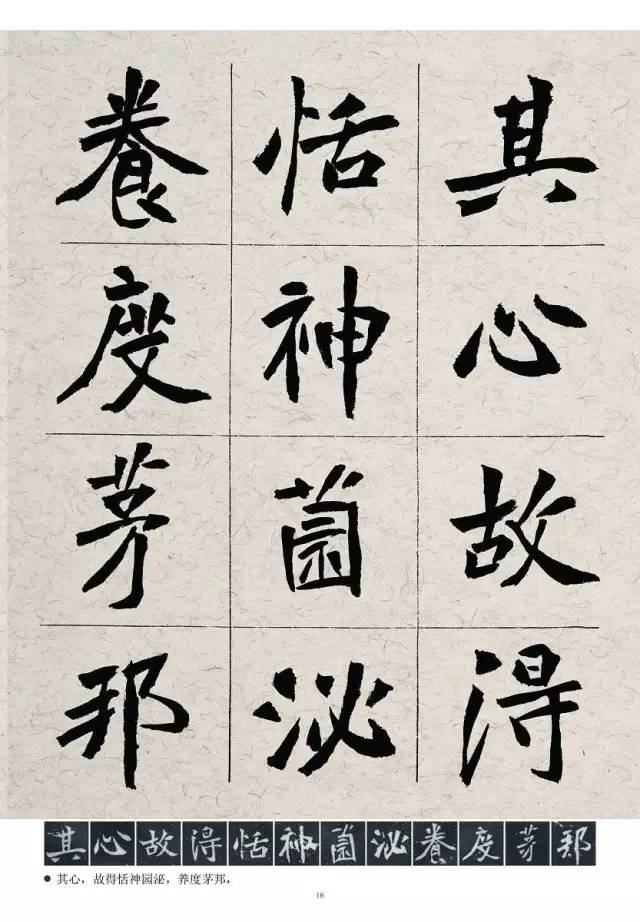 其心故得
恬神園泌
養度茅邦
其心故得恬神園泌養度茅邦
● 其心，故得恬神园泌，养度茅邦，
16